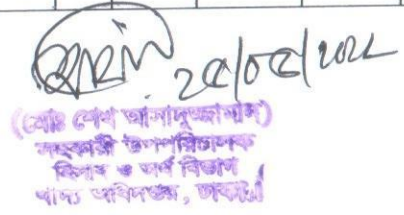 ২৫/০৫/২০২২
(মোঃ শেখ আসাদুজ্জামান)
সহকারী উপপরিচালক
হিসাব ও অর্থ বিভাগ
খাদ্য অধিদপ্তর, ঢাকা।